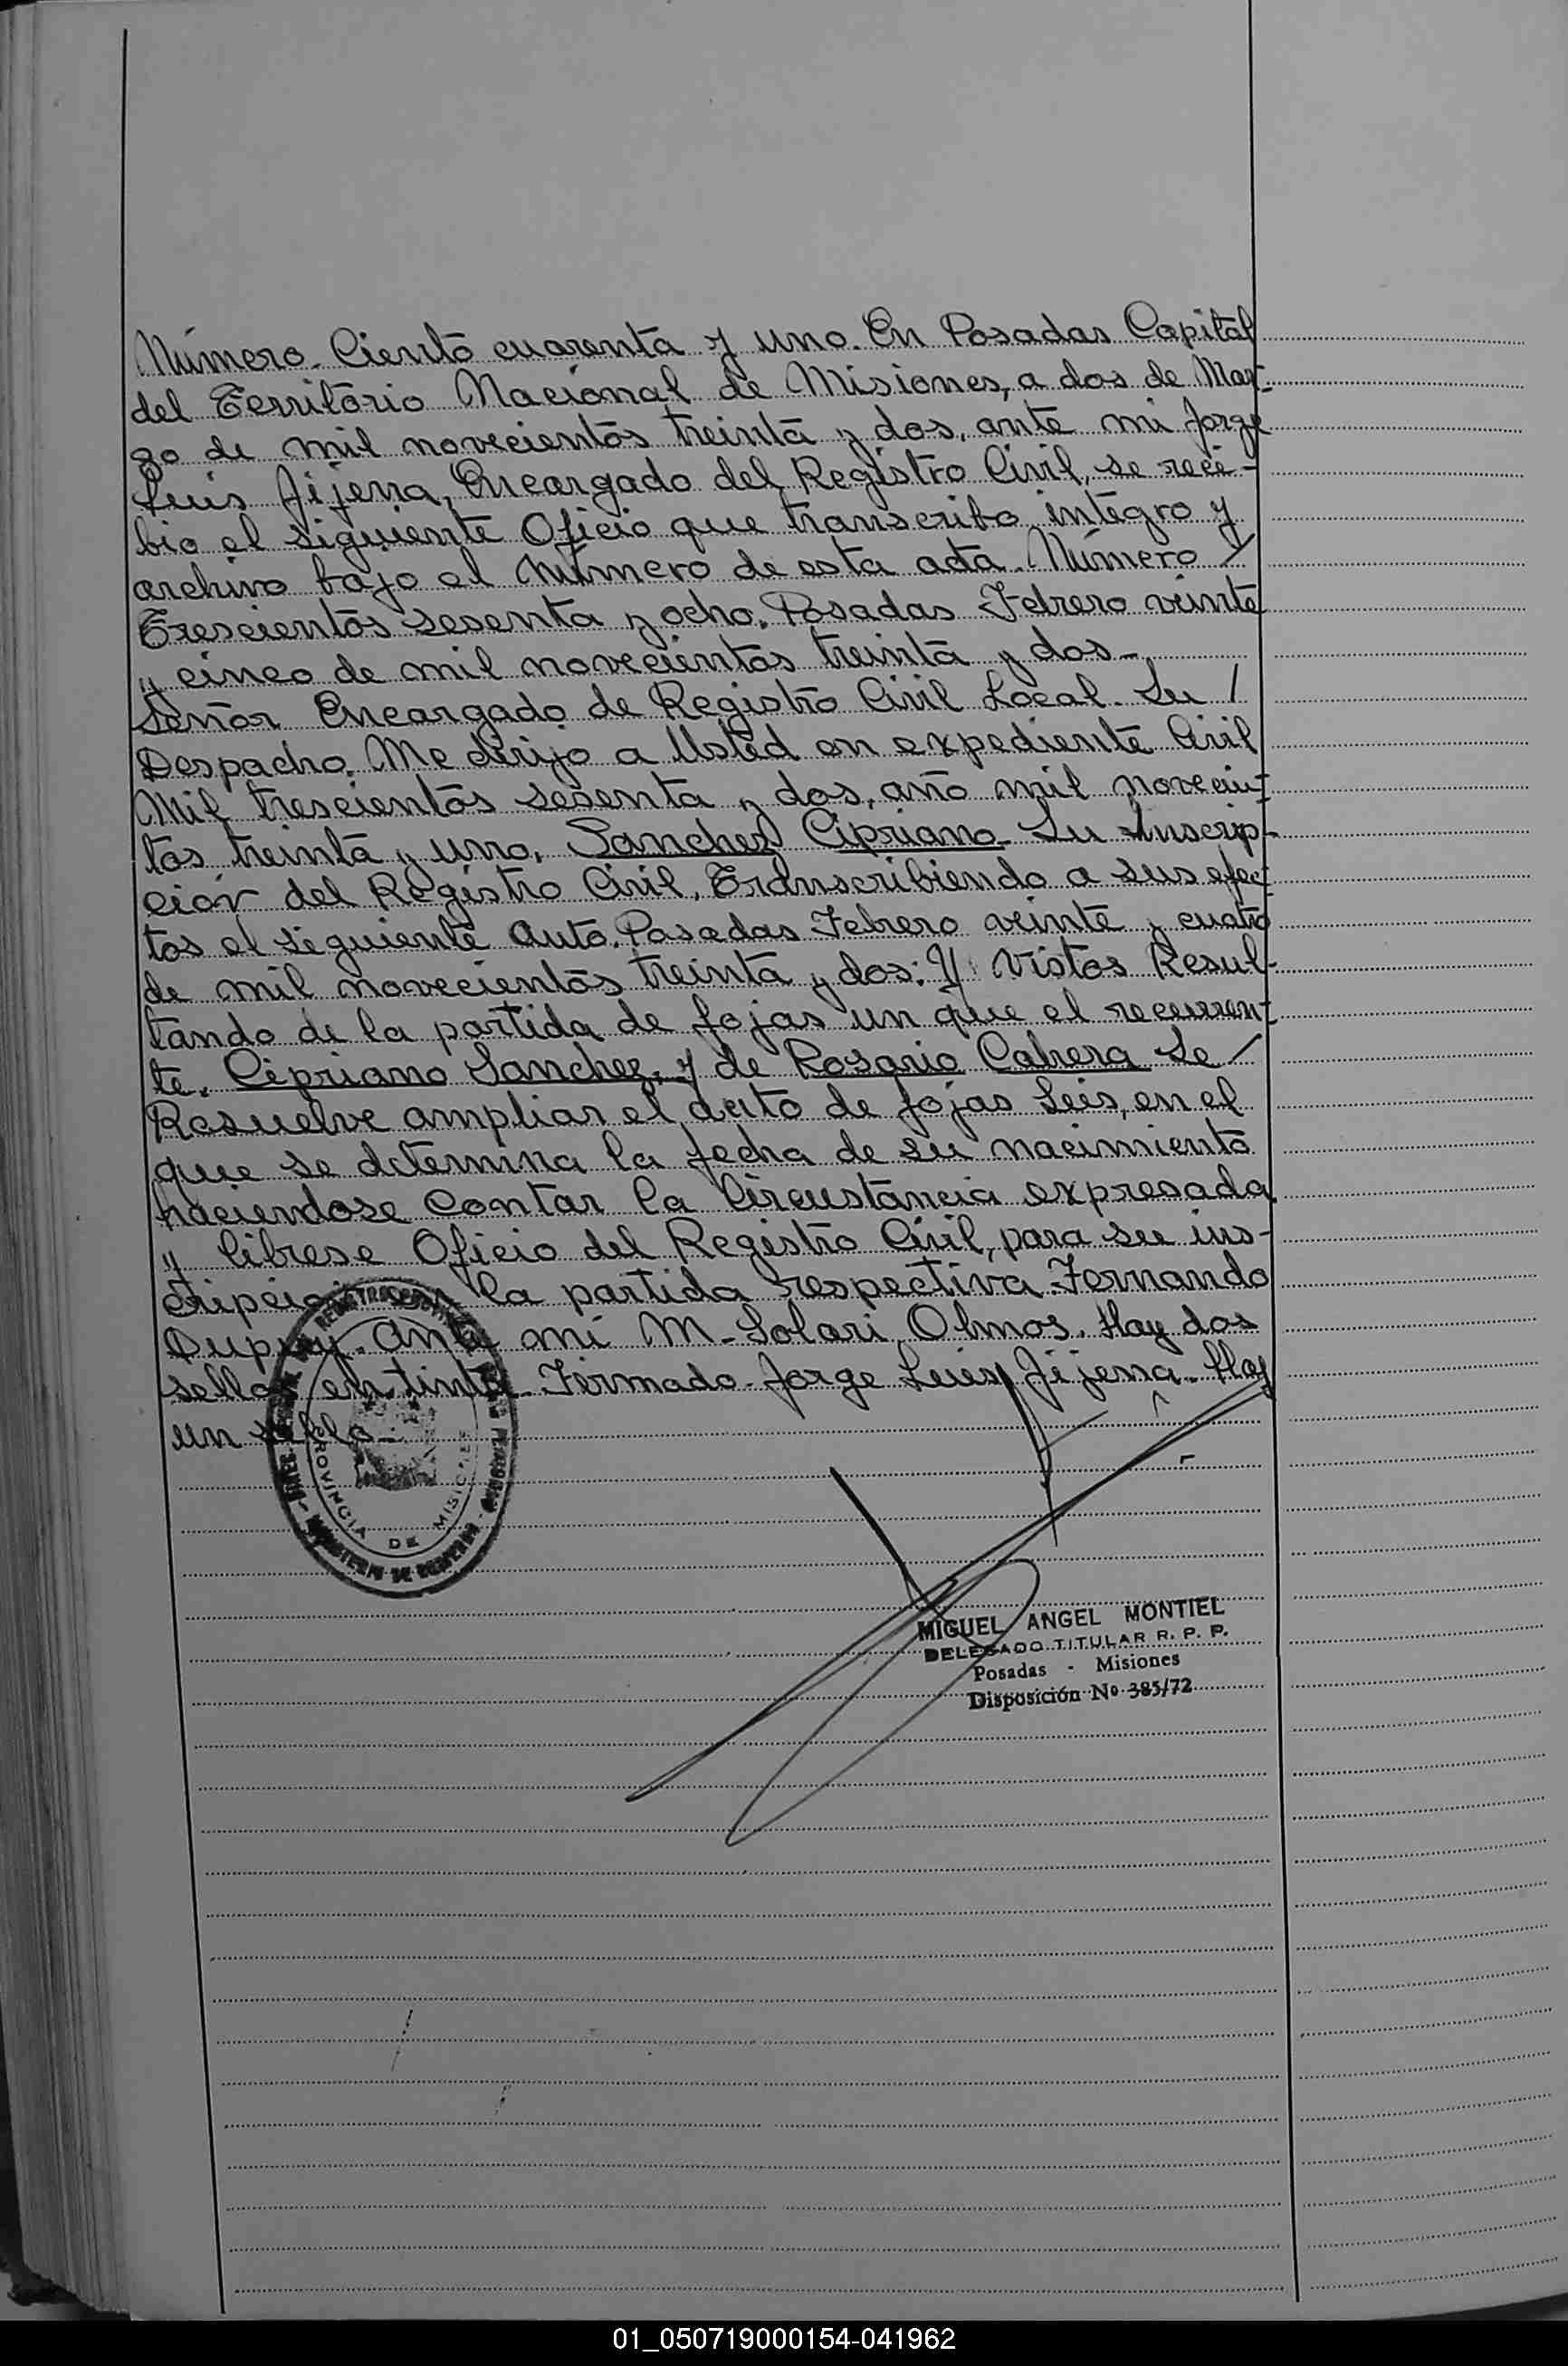 Número. Ciento cuarenta y uno. En Posadas Capital
del Territorio Nacional de Misiones, a dos de Mar-
zo de mil novecientos treinta y dos, ante mi Jorge
Luis Jijena, Encargado del Registro Civil, se reci-
bio el siguiente Oficio que transcribo integro y
archivo bajo el número de esta acta. Número /
Trescientos sesenta y ocho. Posadas Febrero veinte
y cinco de mil novecientos treinta y dos-
Señor Encargado de Registro Civil Local. Su /
Despacho. Me dirijo a Usted en expediente Civil
Mil trescientos sesenta y dos, año mil novecien-
tos treinta y uno, Sanchez Cipriano. Su Inscrip-
ción del Registro Civil, Transcribiendo a sus efec-
tos el siguiente Auto. Posadas Febrero veinte y cuatro
de mil novecientos treinta y dos: Y Vistos Resul-
tando de la partida de fojas un que el recurren-
te. Cipriano Sanchez, y de Rosario Cabrera Se /
Resuelve ampliar el auto de fojas Seis, en el
que se determina la fecha de su nacimiento
haciendose contar la Circustancia expresada
y librese Oficio del Registro Civil, para su ins-
cripcion en la partida respectiva. Fernando
Dupuy. Ante mi M. Solari Olmos. Hay dos
sellos en tinta. Firmado. Jorge Luis Jijena. Hay
un sello-
PROVINCIA DE MISIONES
MIGUEL ANGEL MONTIEL
DELEGADO TITULAR R. P. P.
Posadas - Misiones
Disposición Nº 385/72
01_050719000154-041962